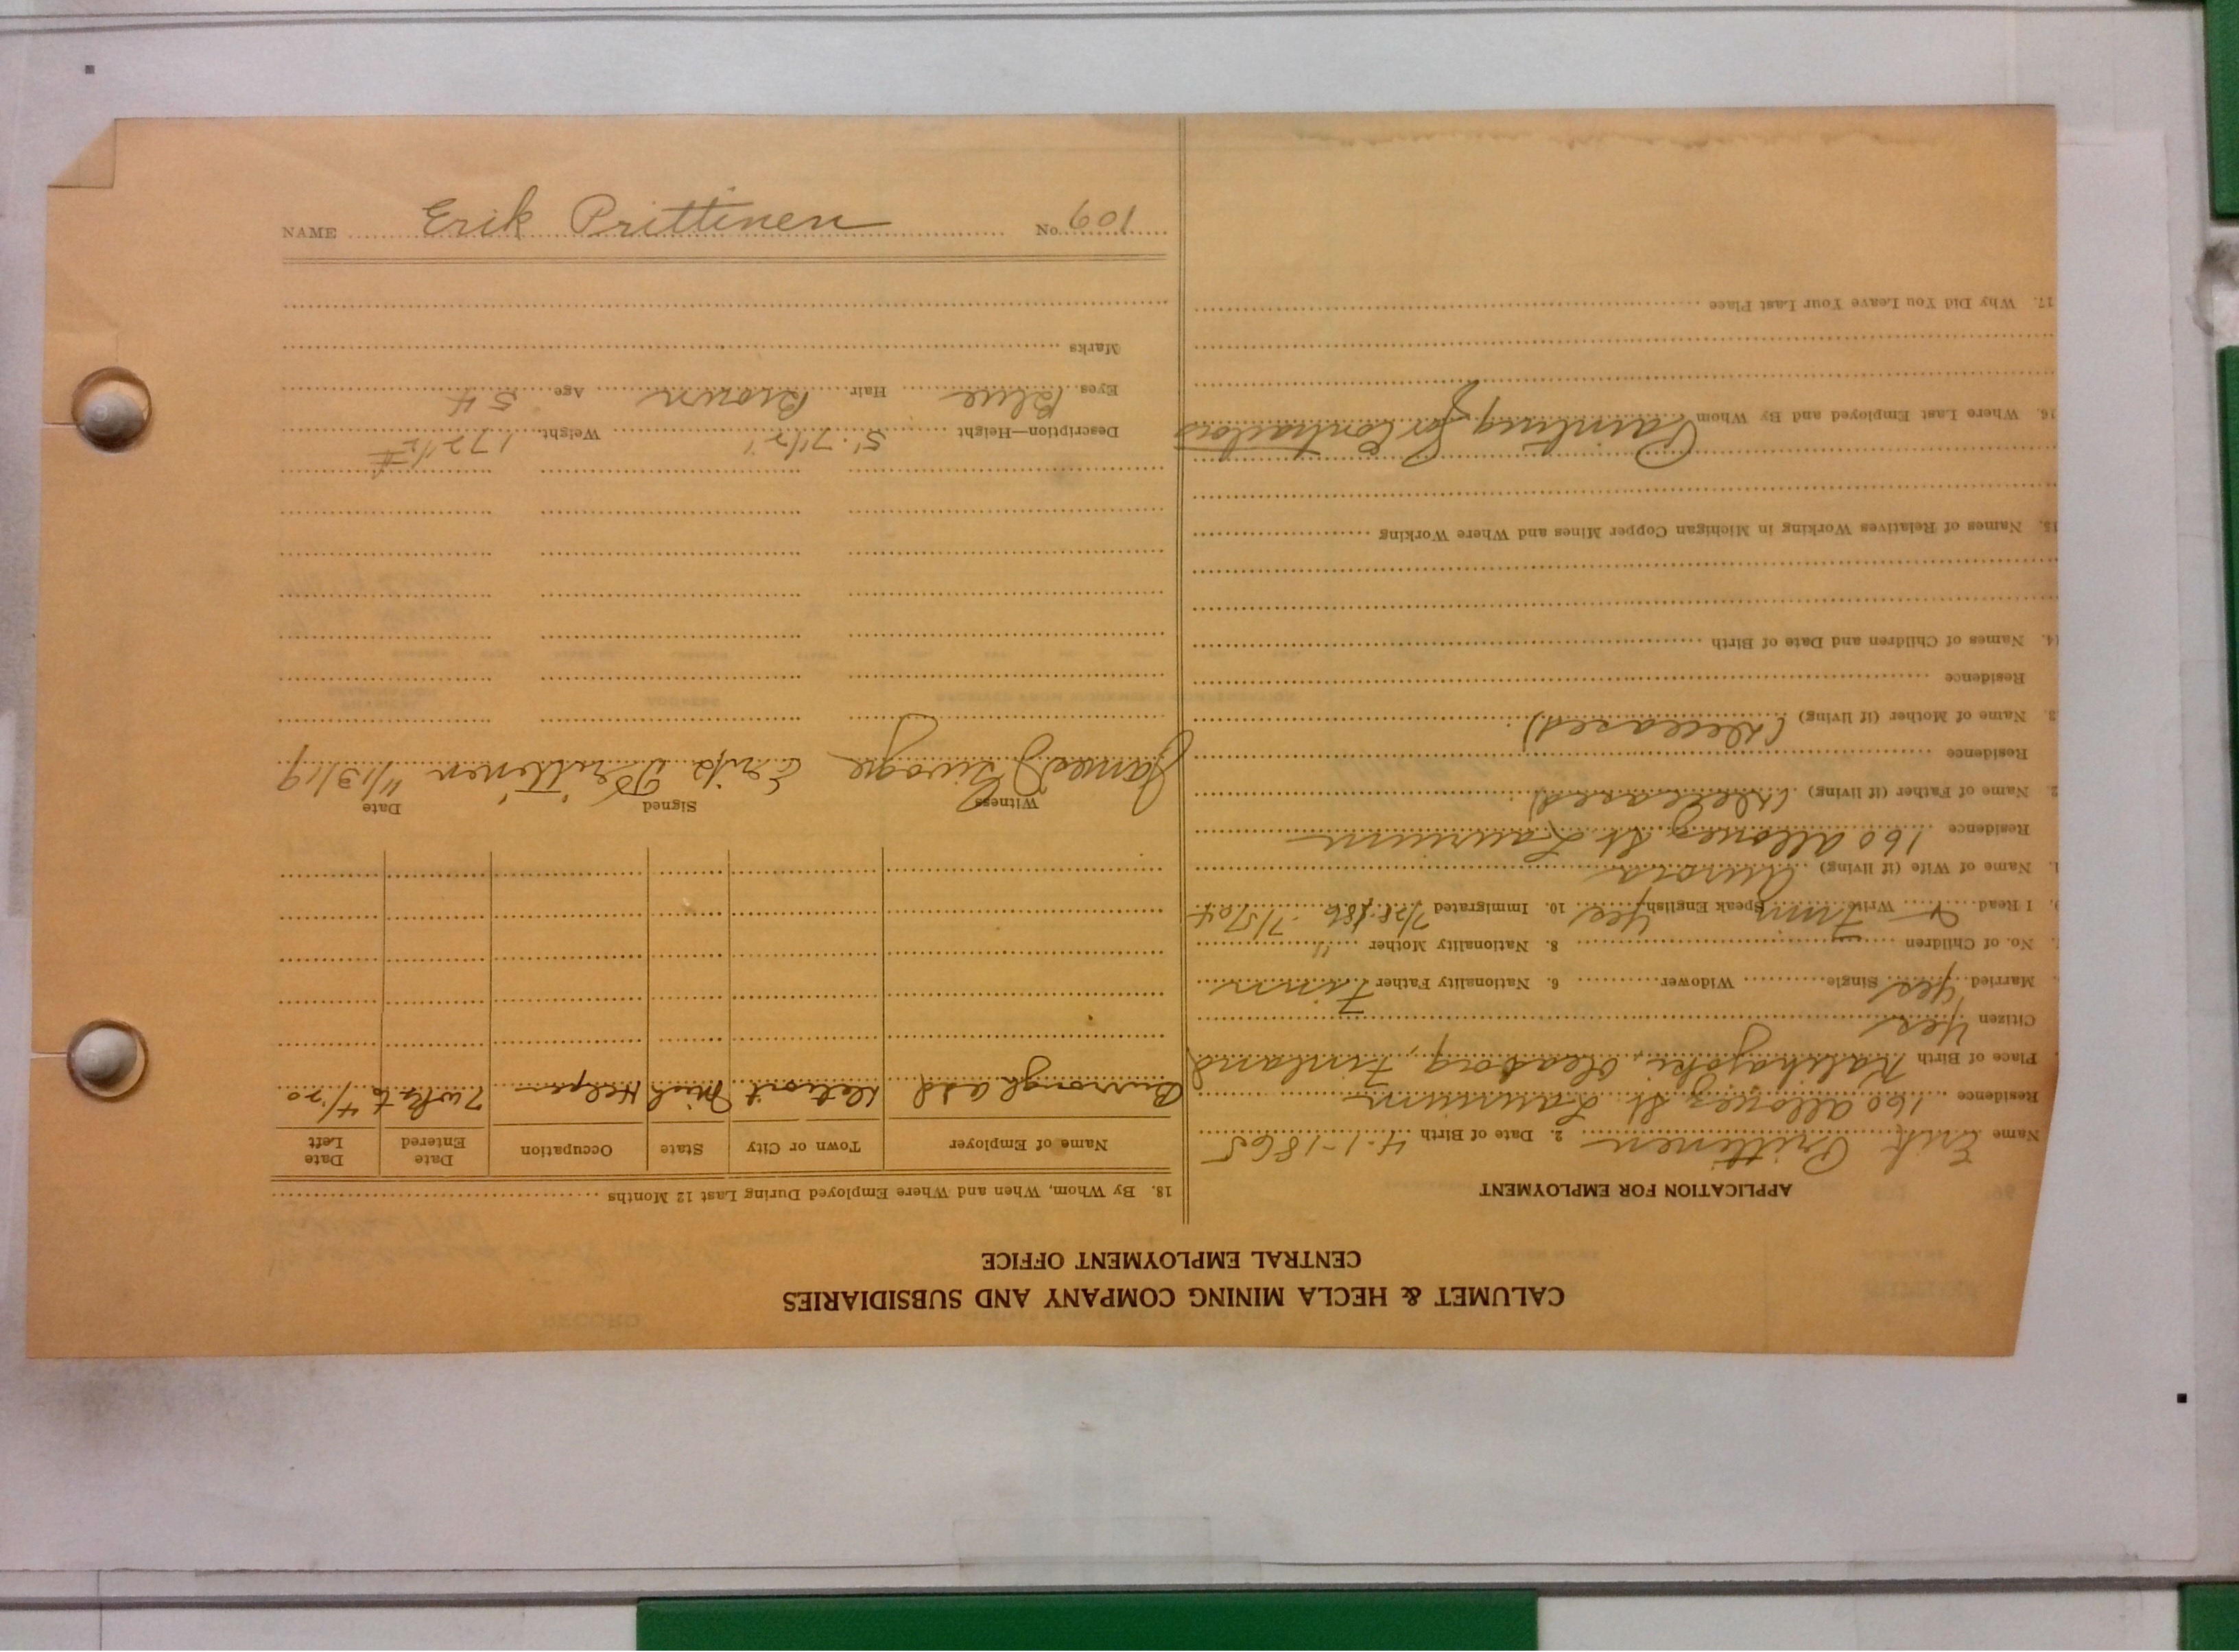 CALUMET & HECLA MINING COMPANY AND SUBSIDIARIES
CENTRAL EMPLOYMENT OFFICE
APPLICATION FOR EMPLOYMENT
Name Erik Prittinen 2. Date of Birth 4-1-1865
Residence 160 Allouez St Laurium
Place of Birth Kalihajoki, Oleaborg, Finland
Citizen Yes
Married Yes Single Widower 6. Nationality Father Finn
7. No. of Children 8. Nationality Mother "
9. I Read Write Finn Speak English Yes 10. Immigrated 7/28/86 - 7/5/04
11. Name of Wife (if living) Aurora
Residence 160 Allouez St Laurium
12. Name of Father (if living) (Deceased)
Residence
13. Name of Mother (if living) (Deceased)
Residence
14. Names of Children and Date of Birth
15. Names of Relatives Working in Michigan Copper Mines and Where Working
16. Where Last Employed and By Whom Painting for Contractors
17. Why Did You Leave Your Last Place
18. By Whom, When and Where Employed During Last 12 Months
Name of Employer Town or City State Occupation Date Entered Date Left
Burrough Add Detroit Mich Helper 7 wks to 4/20
Witness Signed Date
James Erik Prittinen 11/13/19
Description—Height 5' 7 1/2" Weight 172 1/2 #
Eyes Blue Hair Brown Age 54
Marks
NAME Erik Prittinen No. 601